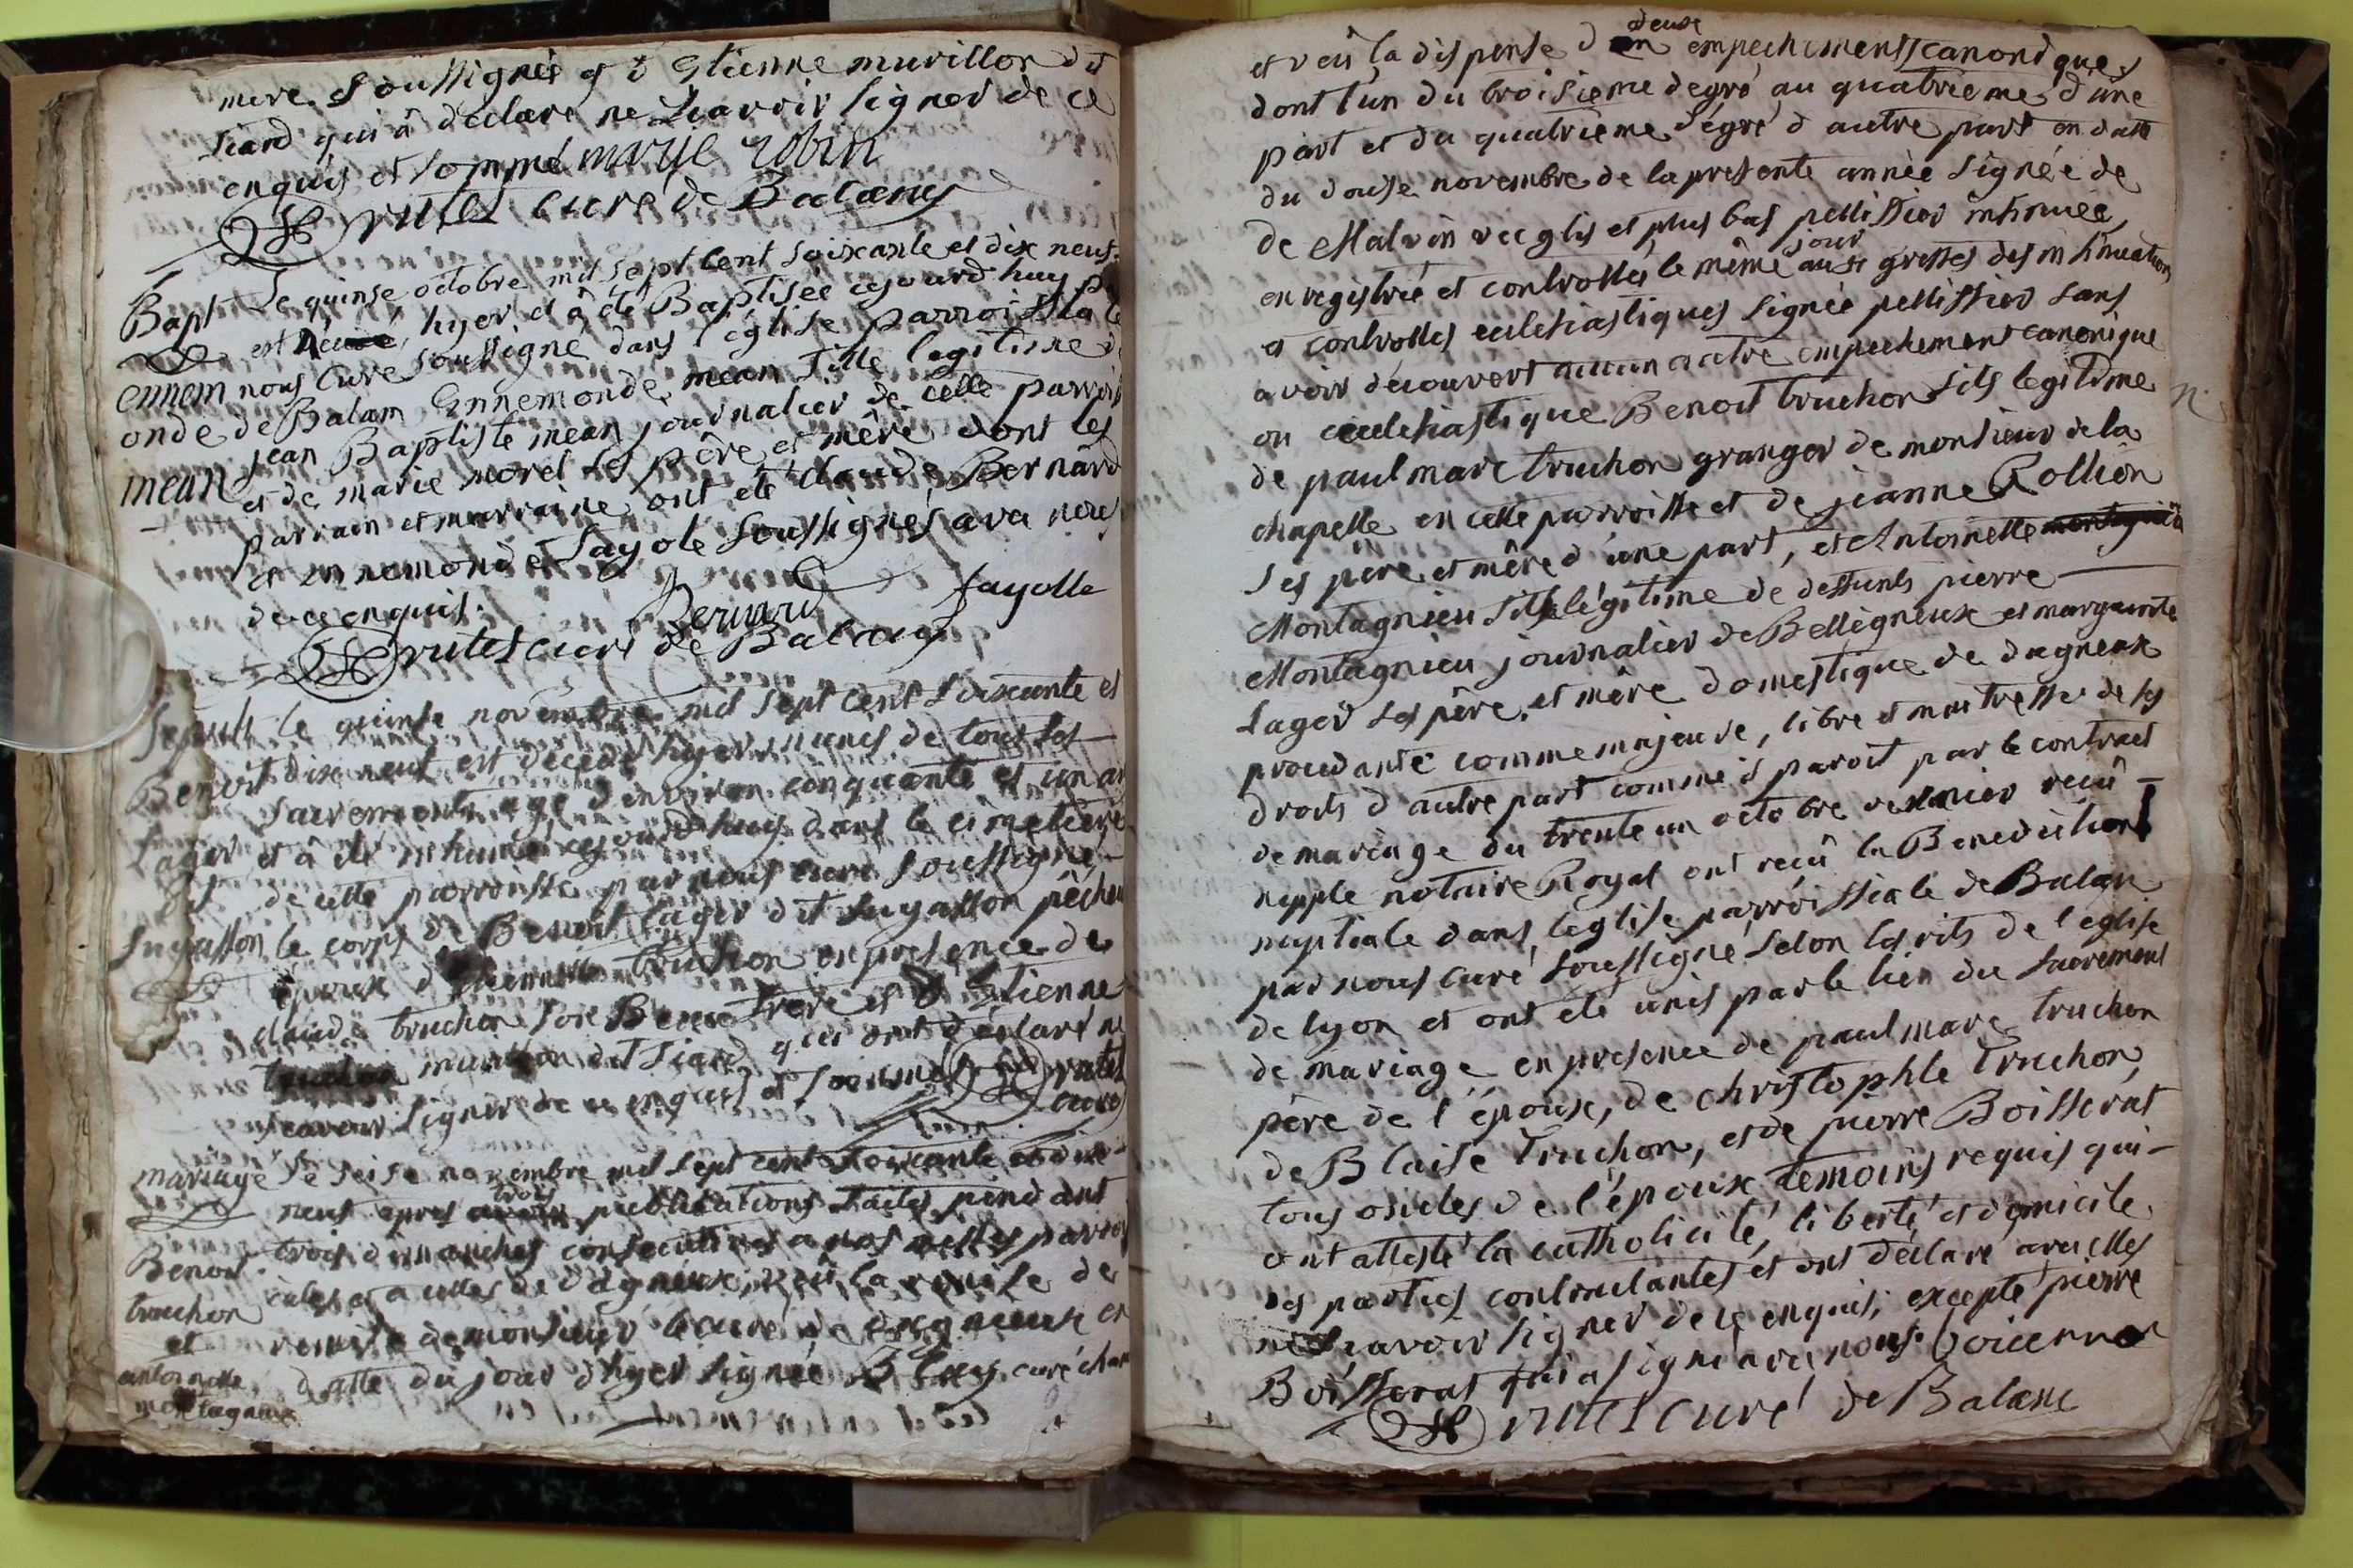 mere soussignés et d Etienne murillon dit
siard qui â declare ne sçavoir signer de ce
enquis et sommé marie robin
curé de Balany
Bapt Le quinse octobre mil sept cent soixante et dix neuf
est hyer et â été Baptisée ajourd'huy
nous Curé soussigné dans l'église parroissiale
ennem
onde de Balam Ennemonde mean fille legitisme de
jean Baptiste mean journalier de cette parroisse
mean
et de marie morel ses père et mêre dont les
parrain et marraine ont eté Claude Bernard
et ennemonde fayole soussignés avec nous
de ce enquis.
Bernard fayolle
curé de Balany
Sepult le quinse novembre mil sept cent soixante et
Benoit dix neuf est décédé hyer muni de tous ses
sacrements agé d'environ cinquante et un an
Lager et â été inhumé ajourd'huy dans le cimetiere
dit de cette parroisse par nous curé soussigné
le corps de Benoit Lager dit pêcheur
époux d'Etiennette truchon en présence de
claude truchon son Beau frere et d'Etienne
murillon dit siard qui ont déclaré ne
sçavoir signer de ce enquis et sommés
curé
mariage Le seise novembre mil sept cent soixante et dix
neuf apres trois publications faites pendant
Benoit trois dimanches consecutives a nos messes parroiss
iales et a celles de dagneux, veû la remise de
truchon
et remise de monsieur le curé de dagneux en
antoinette datte du jour d'hyer signée curé
montagnieu
et veû la dispense d deux empechements canoniques
dont l'un du troisième degré au quatrième d'une
part et du quatrième dégré d autre part en datte
du douse novembre de la presente année signée de
de Malvin vic glis et plus bas pellissier insinuée,
enregistrée et controllée le même jour aux greffes des insinuations
et controlles ecclesiastiques signée pellissier sans
avoir découvert aucun autre empechement canonique
ou ecclesiastique Benoit truchon fils legitime
de paul marc truchon granger de monsieur de la
chapelle en cette parroisse et de jeanne Rollion
ses père et mêre d'une part, et Antoinette
Montagnieu fille légitime de deffunts pierre
Montagnieu journalier de Bellegneux et marguerite
Lager ses père et mère domestique de dagneux
procedante comme majeure, libre et maitresse de ses
droits d'autre part comme il paroit par le contract
de mariage du trente un octobre dernier reçû
notaire Royal ont reçû la Benediction
nuptiale dans l'eglise parroissiale de Balan
par nous curé soussigné selon les rits de l'eglise
de lyon et ont été unis par le lien du sacrement
de mariage en presence de paul marc truchon
père de l'époux, de christophle truchon,
de Blaise truchon, et de pierre Boisserat
tous oncles de l'époux temoins requis qui
ont attesté la catholicité, liberté et domicile
des parties contractantes et ont déclaré avec elles
ne sçavoir signer de ce enquis, excepté pierre
Boisserat qui a signé avec nous.
curé de Balane